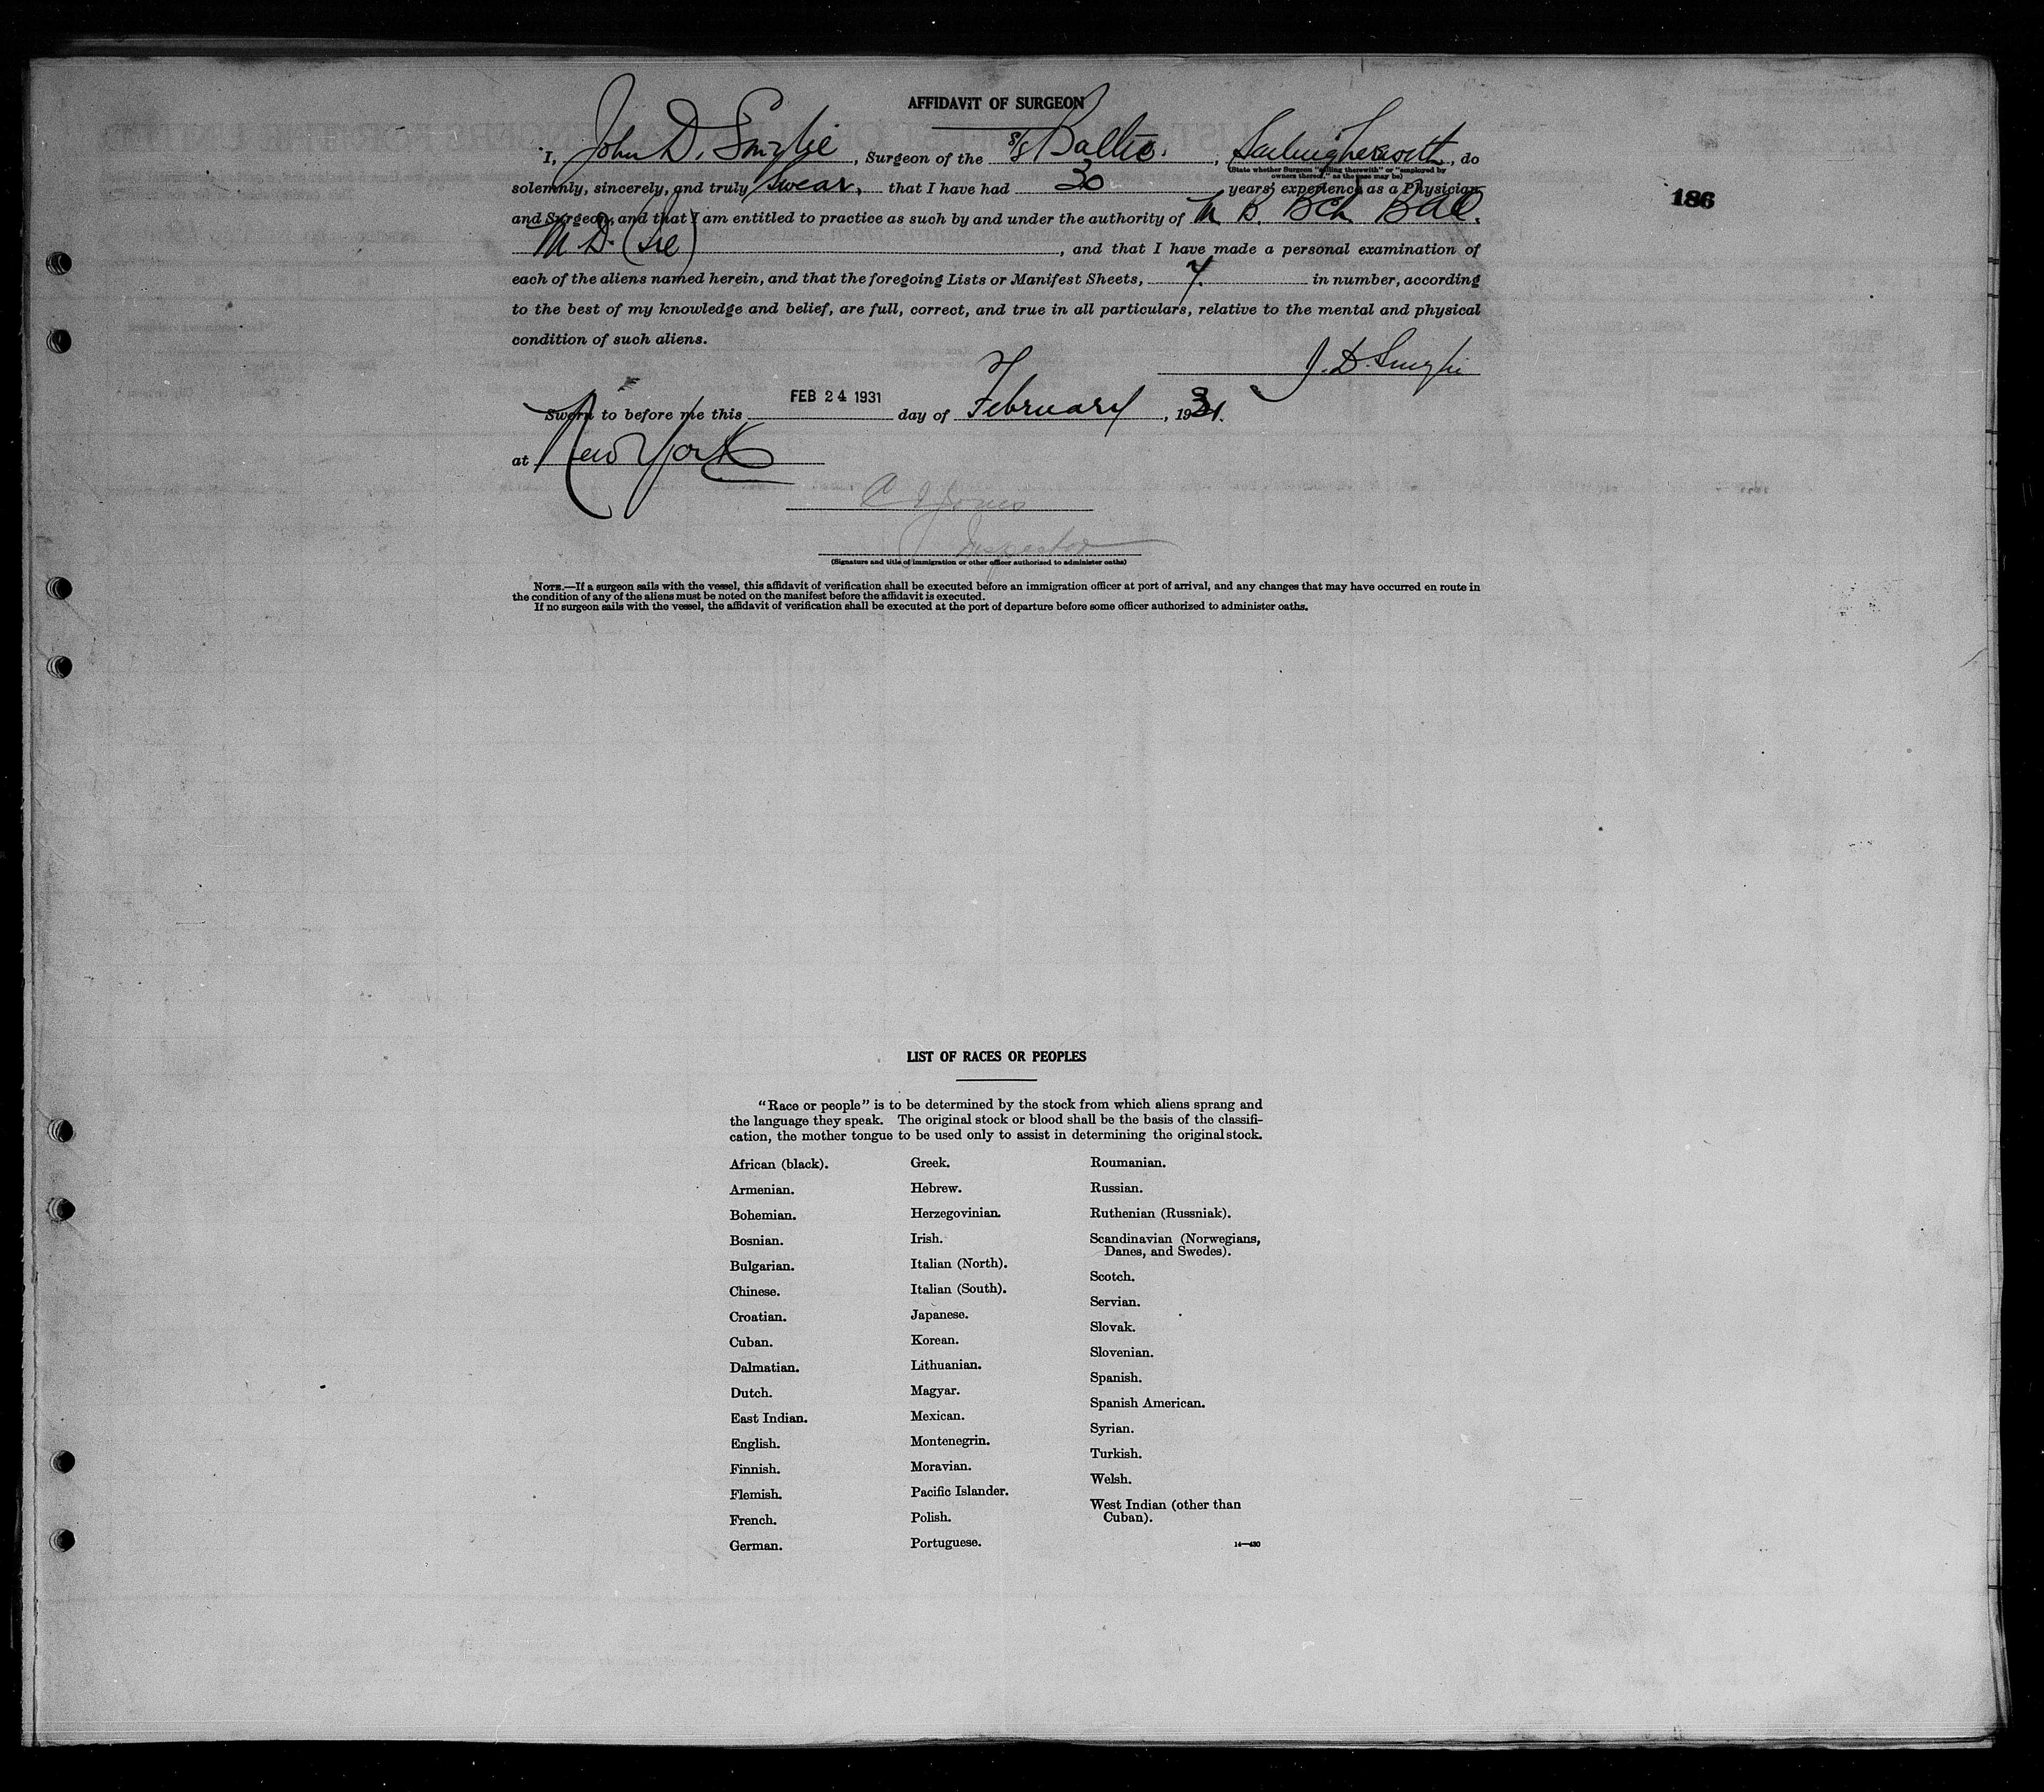 AFFIDAVIT OF SURGEON
I, John D. Smylie, Surgeon of the s/s Baltic., Sailing therewith, do
(State whether Surgeon "sailing therewith" or "employed by
owners thereof," as the case may be)
solemnly, sincerely, and truly swear, that I have had 30 years' experience as a Physician
and Surgeon, and that I am entitled to practice as such by and under the authority of M B. BCh BAO.
M D. , and that I have made a personal examination of
each of the aliens named herein, and that the foregoing Lists or Manifest Sheets, 7. in number, according
to the best of my knowledge and belief, are full, correct, and true in all particulars, relative to the mental and physical
condition of such aliens.
J. D. Smylie
Sworn to before me this FEB 24 1931 day of February, 1931.
at New York
Jones
Inspector
(Signature and title of immigration or other officer authorized to administer oaths)
NOTE.—If a surgeon sails with the vessel, this affidavit of verification shall be executed before an immigration officer at port of arrival, and any changes that may have occurred en route in
the condition of any of the aliens must be noted on the manifest before the affidavit is executed.
If no surgeon sails with the vessel, the affidavit of verification shall be executed at the port of departure before some officer authorized to administer oaths.
186
LIST OF RACES OR PEOPLES
"Race or people" is to be determined by the stock from which aliens sprang and
the language they speak. The original stock or blood shall be the basis of the classifi-
cation, the mother tongue to be used only to assist in determining the original stock.
African (black).
Armenian.
Bohemian.
Bosnian.
Bulgarian.
Chinese.
Croatian.
Cuban.
Dalmatian.
Dutch.
East Indian.
English.
Finnish.
Flemish.
French.
German.
Greek.
Hebrew.
Herzegovinian.
Irish.
Italian (North).
Italian (South).
Japanese.
Korean.
Lithuanian.
Magyar.
Mexican.
Montenegrin.
Moravian.
Pacific Islander.
Polish.
Portuguese.
Roumanian.
Russian.
Ruthenian (Russniak).
Scandinavian (Norwegians,
Danes, and Swedes).
Scotch.
Servian.
Slovak.
Slovenian.
Spanish.
Spanish American.
Syrian.
Turkish.
Welsh.
West Indian (other than
Cuban).
14—430